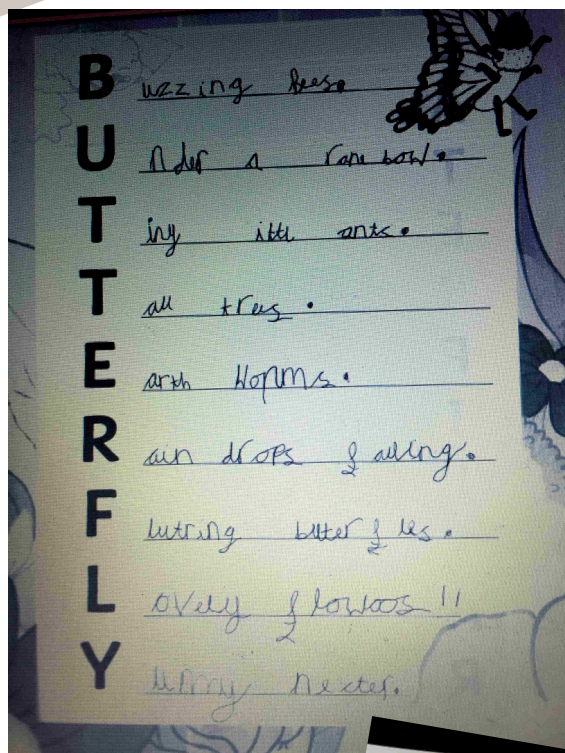 B uzzing bees.
U nder a rane bow.
T iny ittl ants.
T all trees.
E arth Worms.
R ain drops falling.
F lutring buterflies.
L ovely flowoos!!
Y ummy necter.